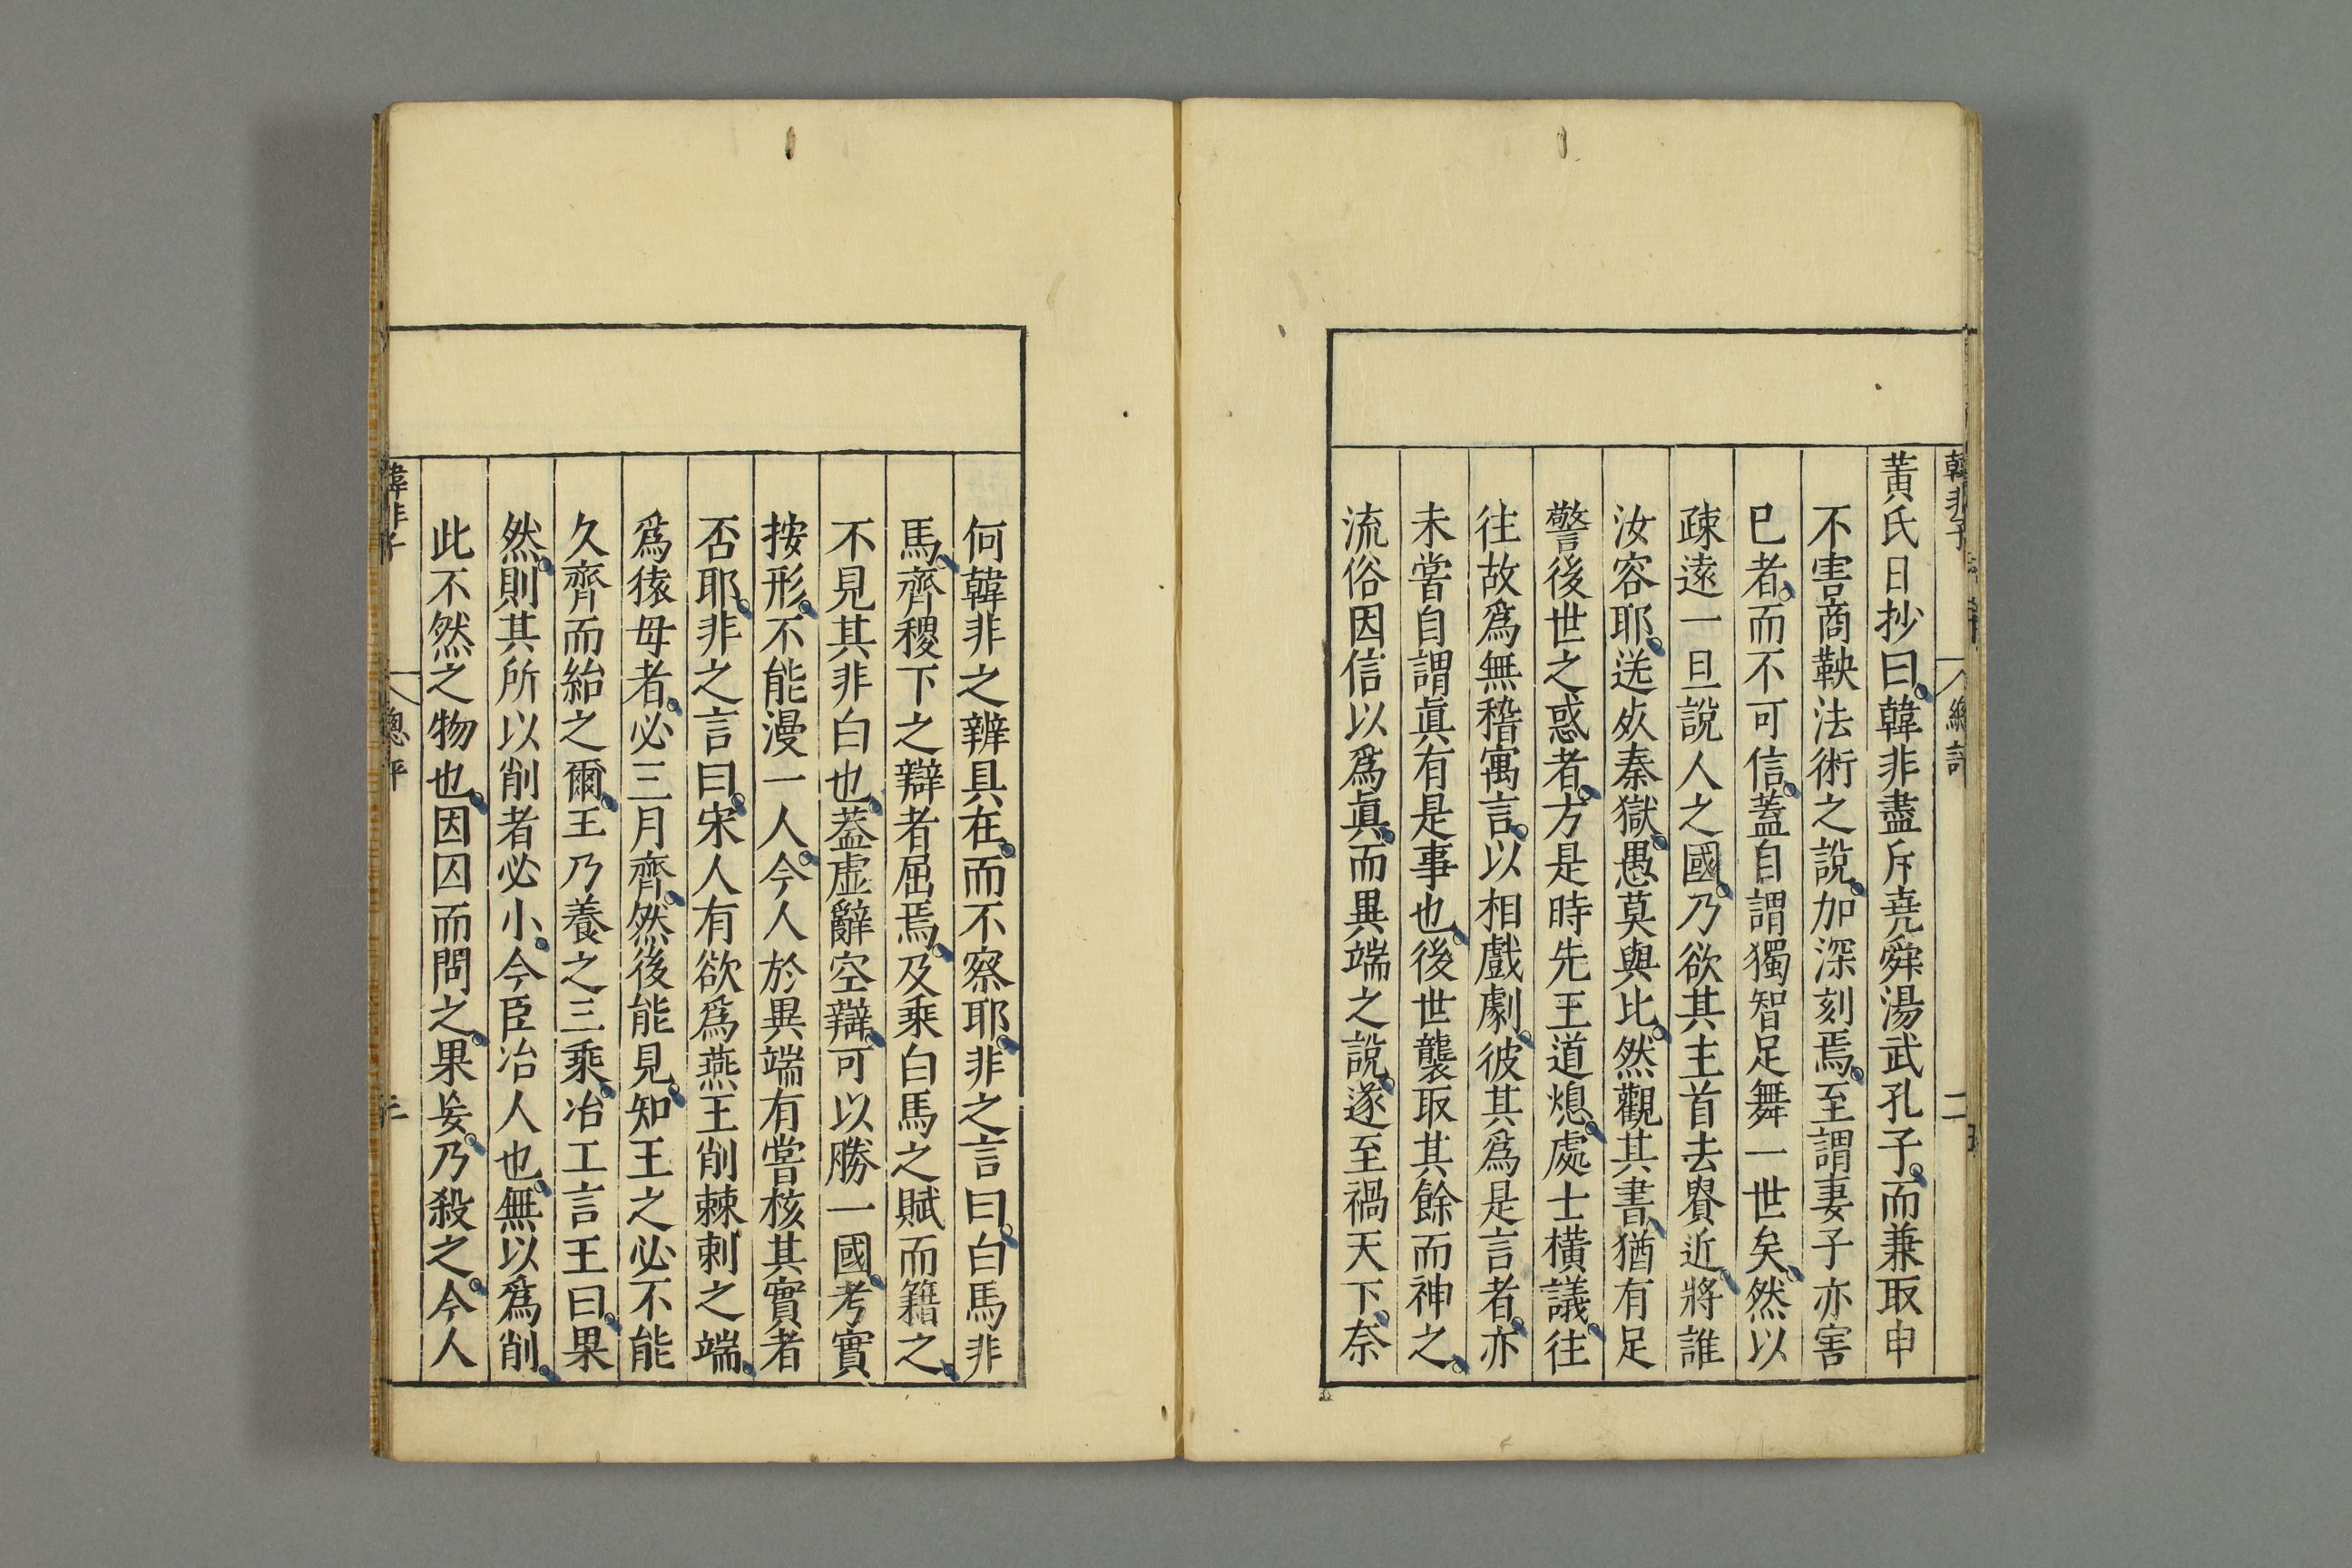 韓非子 總評 二
黃氏日抄曰韓非盡斥堯舜湯武孔子而兼取申
不害商鞅法術之說加深刻焉至謂妻子亦害
已者而不可信蓋自謂獨智足舞一世矣然以
疎遠一旦說人之國乃欲其主首去貴近將誰
汝容耶送死秦獄愚莫與比然觀其書猶有足
警後世之惑者方是時先王道熄處士橫議往
往故爲無稽寓言以相戲劇彼其爲是言者亦
未嘗自謂眞有是事也後世襲取其餘而神之
流俗因信以爲眞而異端之說遂至禍天下奈
何韓非之辨具在而不察耶非之言曰白馬非
馬齊稷下之辯者屈焉及乘白馬之賦而籍之
不見其非白也蓋虛辭空辯可以勝一國考實
按形不能漫一人今人於異端有嘗核其實者
否耶非之言曰宋人有欲爲燕王削棘刺之端
爲猿母者必三月齊然後能見知王之必不能
久齊而紿之爾王乃養之三乘冶工言王曰果
然則其所以削者必小今臣冶人也無以爲削
此不然之物也因囚而問之果妄乃殺之今人
韓非子 總評